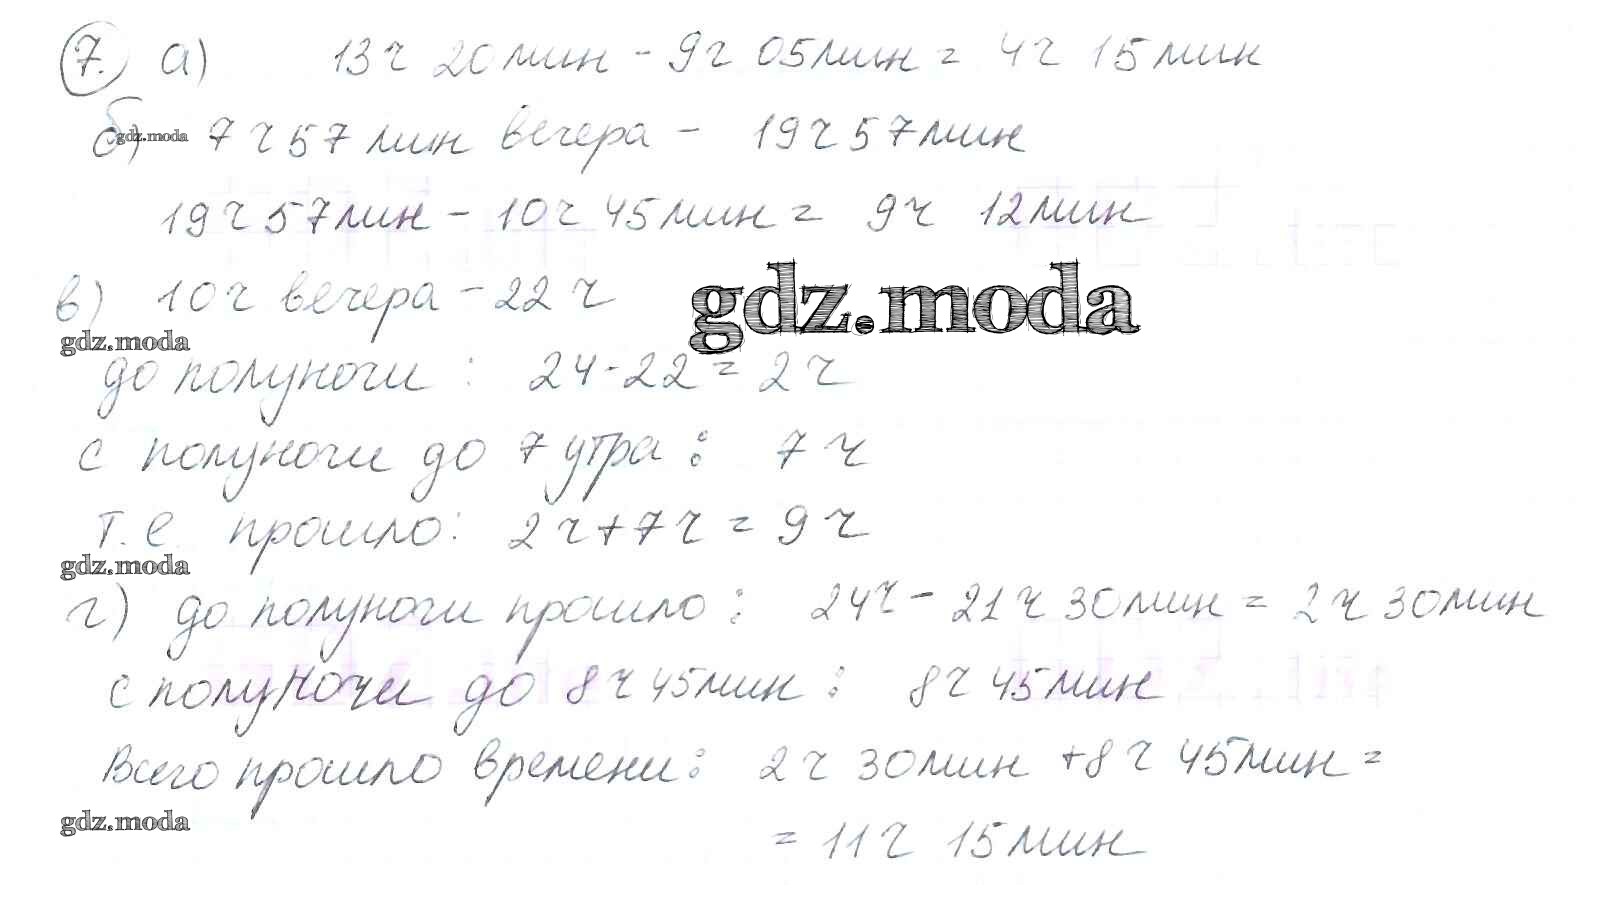 7. а) 13ч 20мин - 9ч 05мин = 4ч 15мин
б) gdz.moda 7ч57мин вечера - 19ч57мин
19ч57мин - 10ч45мин = 9ч 12мин
в) 10ч вечера - 22ч
gdz.moda
gdz.moda
до полуночи : 24-22 = 2ч
с полуночи до 7 утра : 7ч
т.е. прошло: 2ч+7ч = 9ч
gdz.moda
г) до полуночи прошло: 24ч - 21ч30мин = 2ч30мин
с полуночи до 8ч45мин : 8ч45мин
Всего прошло времени: 2ч 30мин +8ч 45мин =
gdz.moda
= 11ч 15мин